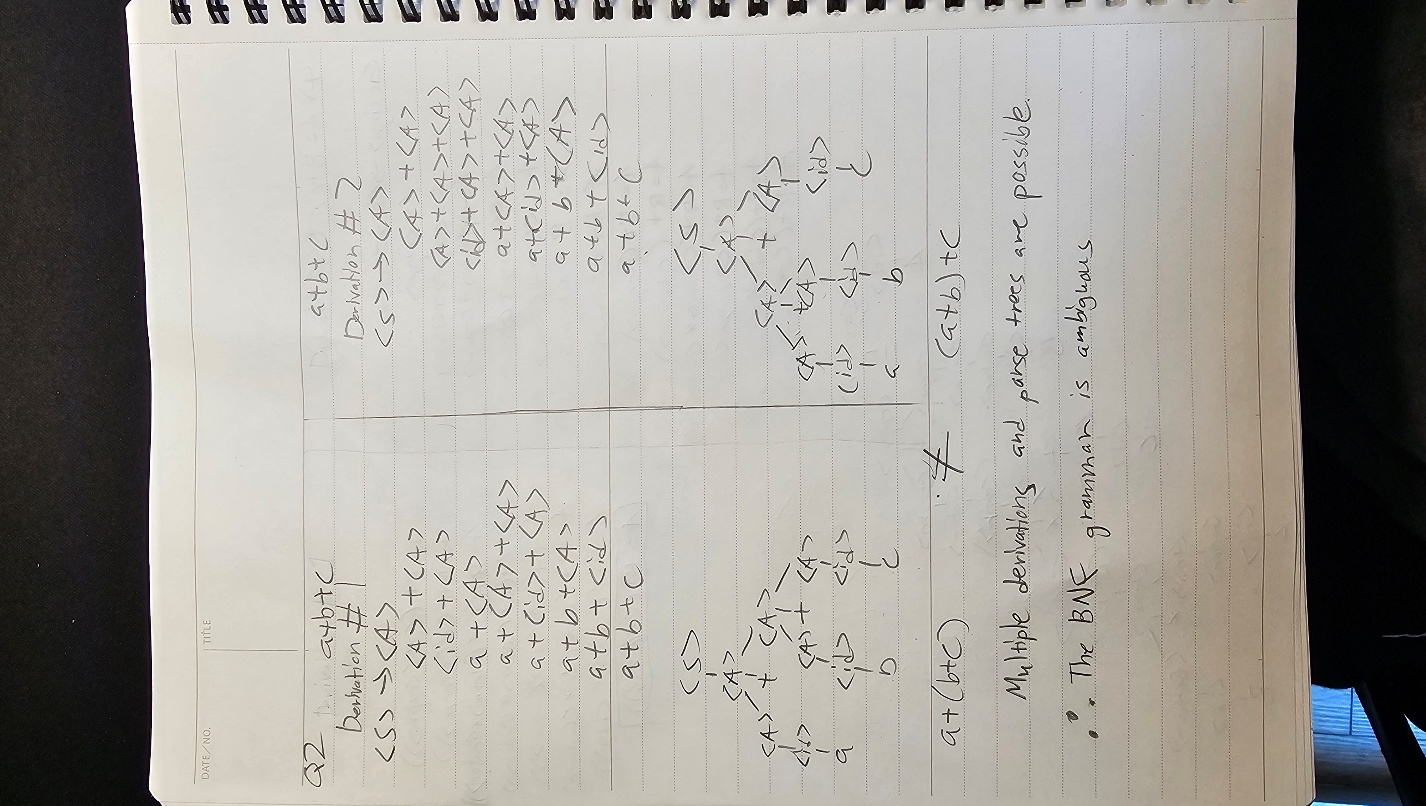 DATE / NO.
TITLE
Q2 a+b+c
Derivation #1
<S> → <A>
<A> + <A>
<id> + <A>
a + <A>
a + <A> + <A>
a + <id> + <A>
a + b + <A>
a + b + <id>
a + b + c
<S>
<A>
<A> + <A>
<id> <A> + <A>
a <id> <id>
b c
a+b+c
Derivation #2
<S> → <A>
<A> + <A>
<A> + <A> + <A>
<id> + <A> + <A>
a + <A> + <A>
a + <id> + <A>
a + b + <A>
a + b + <id>
a + b + c
<S>
<A>
<A> + <A>
<A> + <A> <id>
<id> <id> c
a b
a+(b+c) ≠ (a+b)+c
Multiple derivations and parse trees are possible.
∴ The BNF grammar is ambiguous